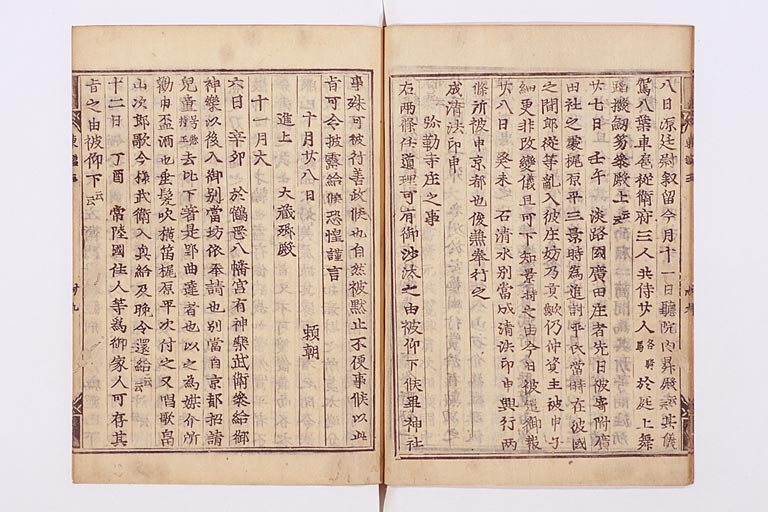 八日源廷尉叙留今月十一日聽院内昇殿云云其儀
駕八葉車扈從衛府三人共侍廿人各騎馬於庭上舞
踏撥釼笏參殿上云云
廿七日壬午淡路國廣田庄者先日被寄附廣
田社之處梶原平三景時為追討平氏當時在彼國
之間郎從等亂入彼庄妨乃貢歟仍仲資王被申子
細更非改變儀且可下知景時之由今日被遣御報
廿八日癸未石清水別當成清法印申興行兩
條所被申京都也俊兼奉行之
成清法印申
弥勒寺庄之事
右兩條任道理可有御沙汰之由被仰下候畢神社
事殊可被行善政候也自然被黙止不便事候以此
旨可令披露給候恐惶謹言
十月廿八日 頼朝
進上 大藏卿殿
十一月大
六日辛卯於鶴岳八幡宮有神樂武衛參給御
神樂以後入御別當坊依奉請也別當自京都招請
兒童去比下著是郢曲達者也以之為媒介所
勸申盃酒也垂髮吹横笛梶原平次付之又唱歌畠
山次郎歌今様武衛入興給及晩令還給云云
十二日丁酉常陸國住人等為御家人可存其
旨之由被仰下云云